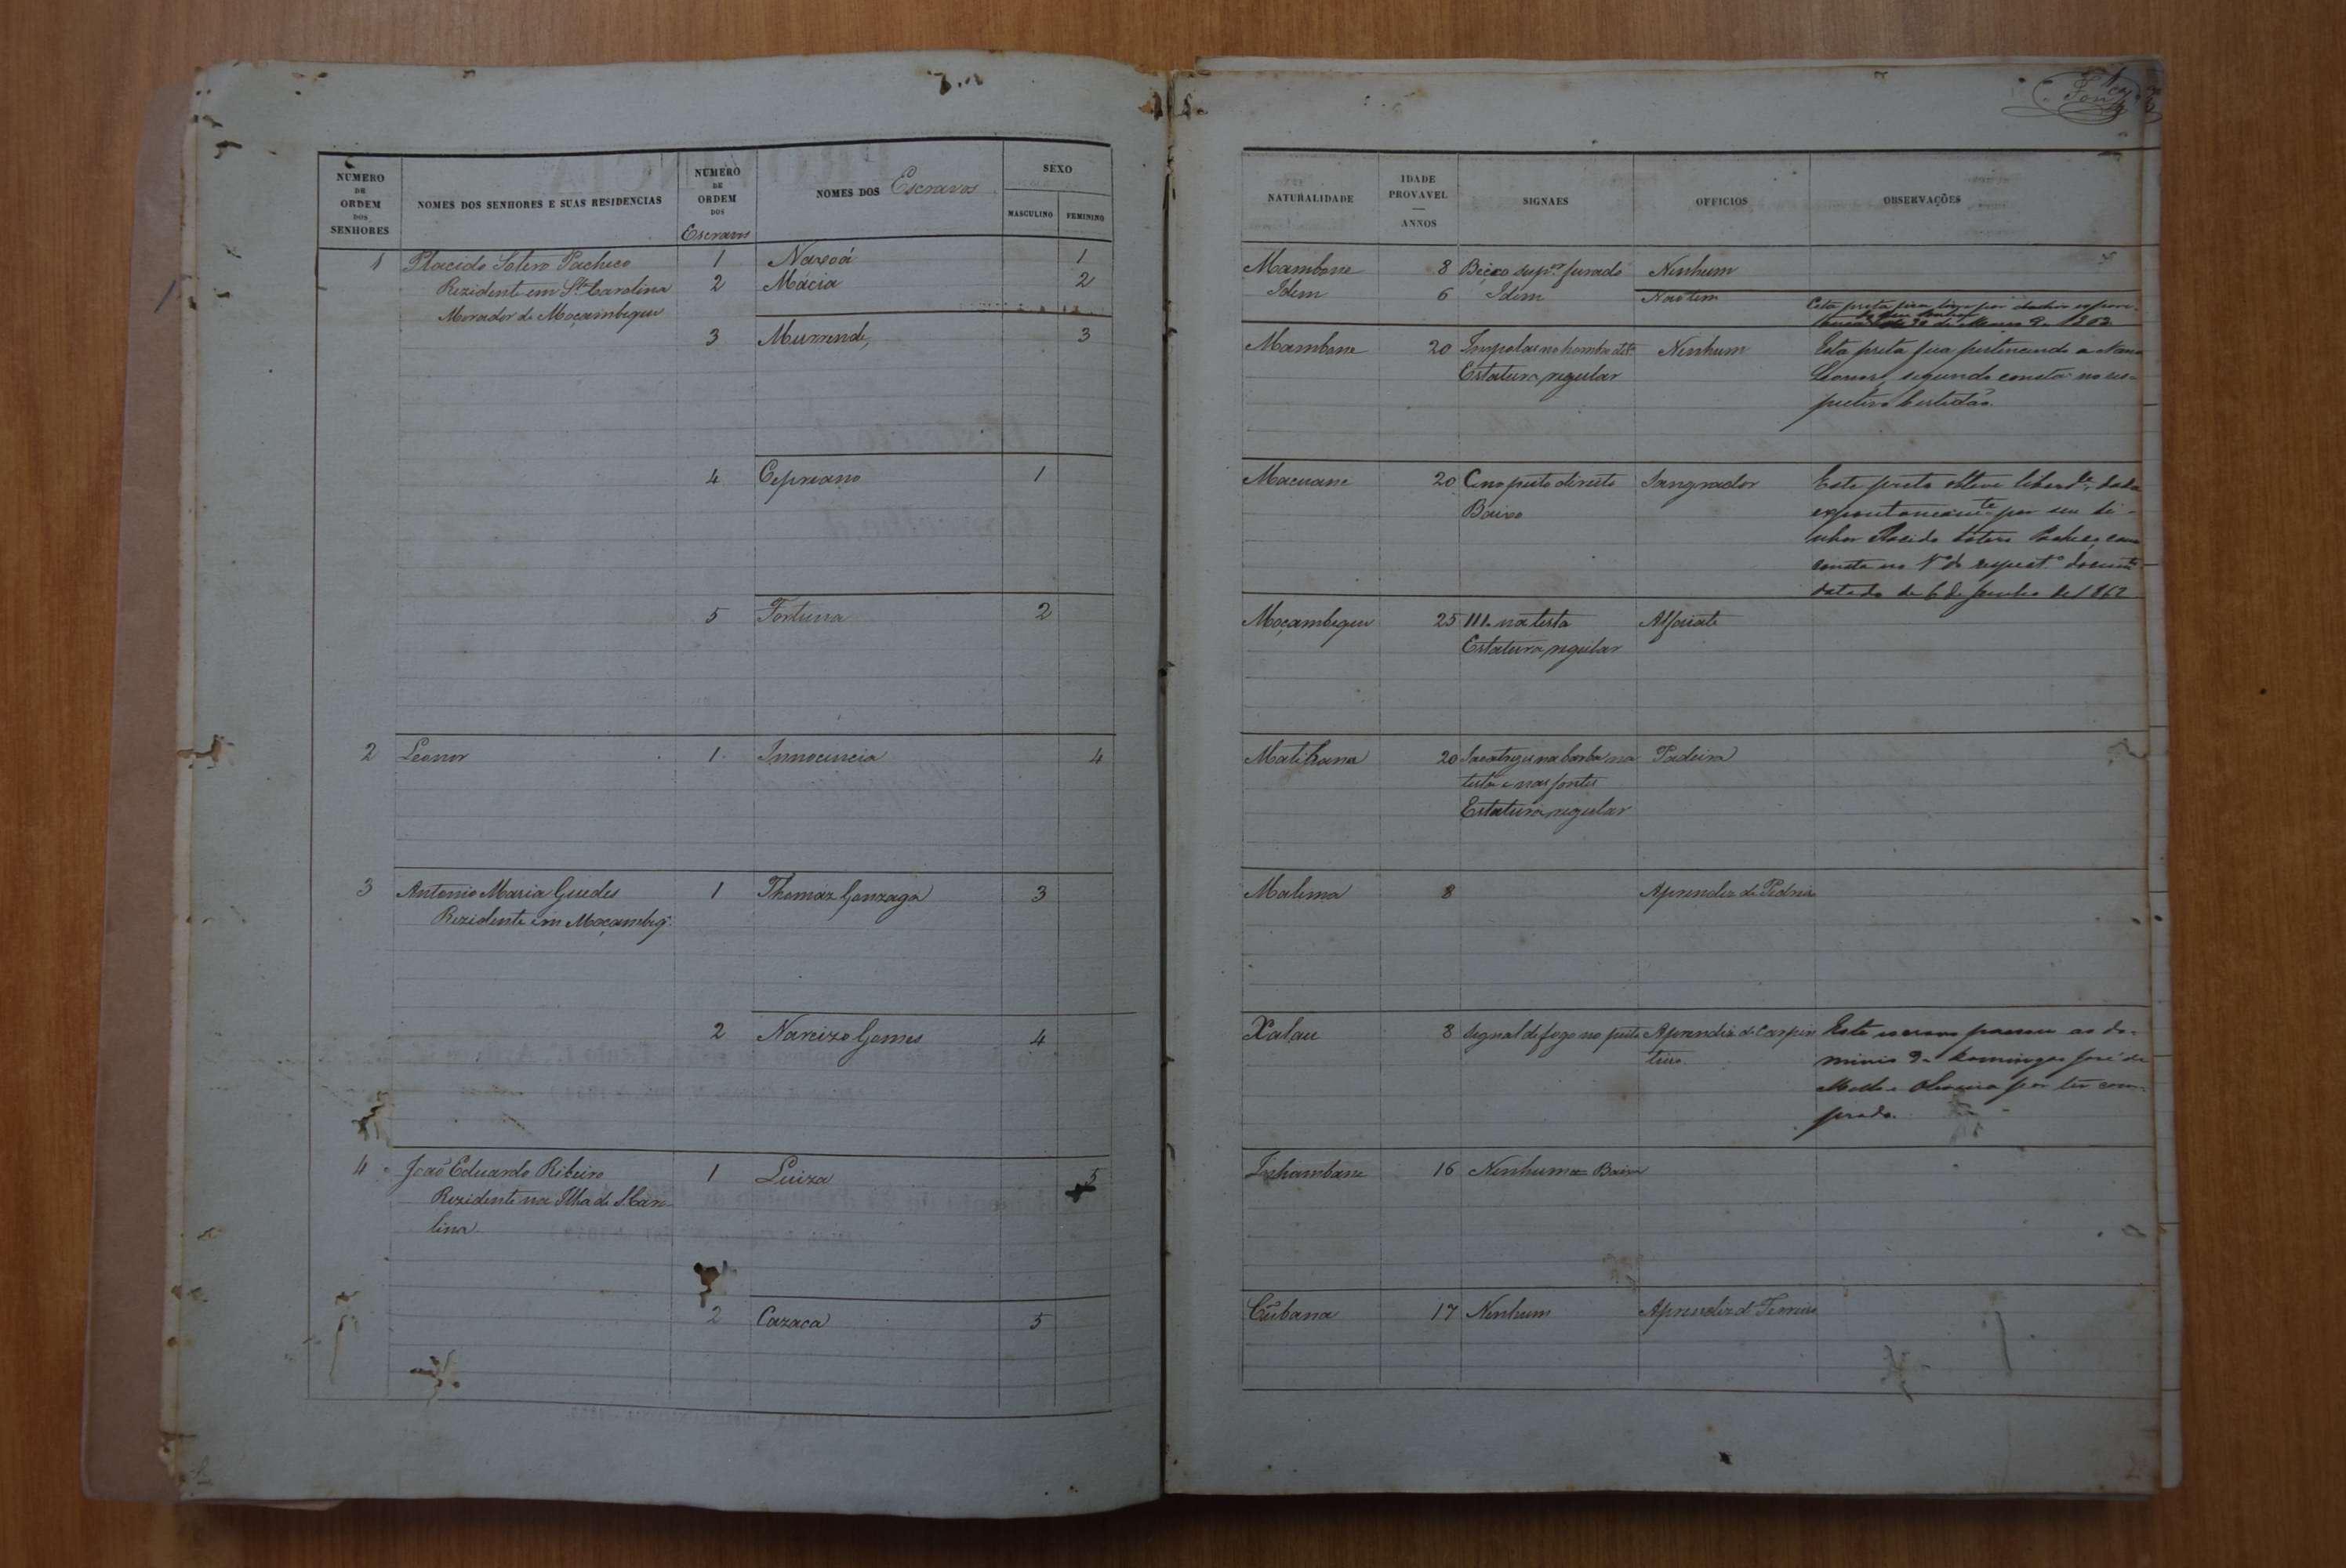 NUMERO DE ORDEM DOS SENHORES
NOMES DOS SENHORES E SUAS RESIDENCIAS
NUMERO DE ORDEM DOS Escravos
NOMES DOS Escravos
SEXO
MASCULINO FEMININO
NATURALIDADE
IDADE PROVAVEL — ANNOS
SIGNAES
OFFICIOS
OBSERVAÇÕES
1 Placido Sotero Pacheco 1 1 Mambone 8 Beiço sup.or furado Nenhum
Rezidente em Sta Carolina 2 Mácia 2 Idem 6 Idem Não tem Esta preta fica
Morador de Moçambique de 1862
3 Murrende, 3 Mambone 20 no hombro dito Nenhum Esta preta fica pertencendo a
Estatura regular Leonor, segundo consta no res-
petivo Certidão.
4 Cepreano 1 Macuane 20 C no peito direito Sangrador Este preto obteve liberde dada
Baixo expontaneamte por seu Si-
nhor Placido Sotero Pacheco, como
consta no No do respect.o docum.to
datado de 6 de Junho de 1862
5 Fortuna 2 Moçambique 25 111. na testa Alfaiate
Estatura regular
2 Leonor 1 Innocencia 4 20 na barba, na Padeira
testa e nas fontes
Estatura regular
3 Antonio Maria Guedes 1 Thomáz Gonzaga 3 Malema 8 Aprendiz de Pedreiro
Rezidente em Moçambiq.
2 Narcizo Gomes 4 Xalau 8 Signal de fogo no peito Aprendiz de Carpin Este escravo passou ao do-
teiro. minio de Domingos José de
Mello e Oliveira por ter com-
prado.
4 João Eduardo Ribeiro 1 Luiza 5 Inhambane 16 Nenhuma Baixa
Rezidente na Ilha de S. Caro
lina
2 Cazaca 5 17 Nenhum Aprendiz d' Ferreiro